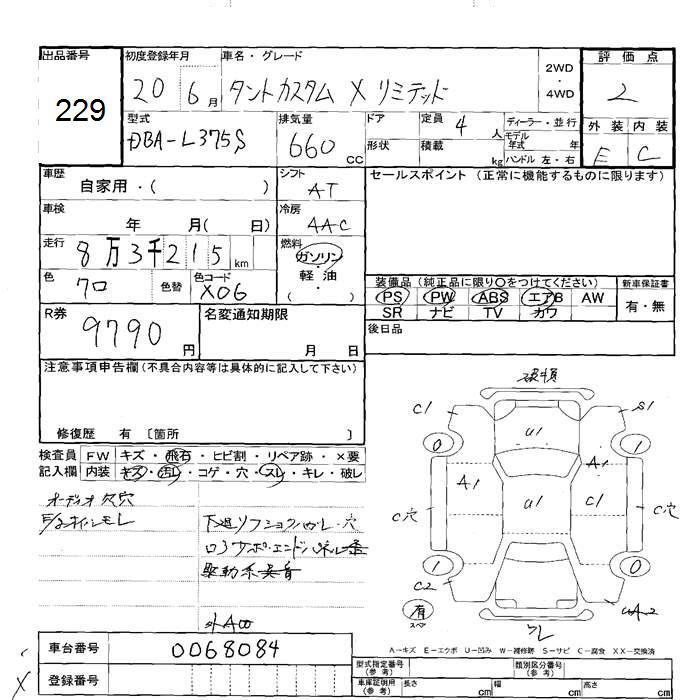 出品番号
229
初度登録年月
20 6月
車名・グレード
タントカスタム X リミテッド
2WD
・
4WD
評価点
2
型式
DBA-L375S
排気量
660 CC
ドア
形状
定員 4 人
積載 kg
ディーラー・並行
モデル年式 年
ハンドル 左・右
外装 内装
E C
車歴
自家用・( )
シフト
AT
セールスポイント (正常に機能するものに限ります)
車検
年 月( 日)
冷房
AAC
走行
8万3千215 km
燃料
ガソリン
・
軽油
( )
色
クロ
色替
色コード
X06
装備品 (純正品に限り○をつけてください)
PS PW ABS エアB AW
SR ナビ TV カワ
新車保証書
有・無
R券
9790 円
名変通知期限
月 日
後日品
注意事項申告欄 (不具合内容等は具体的に記入して下さい)
修復歴 有 〔箇所 〕
検査員 FW キズ・飛石・ヒビ割・リペア跡・×要
記入欄 内装 キズ・汚れ・コゲ・穴・スレ・キレ・破レ
オーディオ欠穴
下廻リ
駆動系異音
外A00
C1 S1
0 1
U1
A1 A1
U1 C1
C穴 C穴
1 0
C2
有
スペア
ワレ
A-キズ E-エクボ U-凹み W-補修跡 S-サビ C-腐食 XX-交換済
車台番号
0068084
登録番号
型式指定番号 (参考)
類別区分番号 (参考)
車庫証明用 (参考)
長さ cm 幅 cm 高さ cm